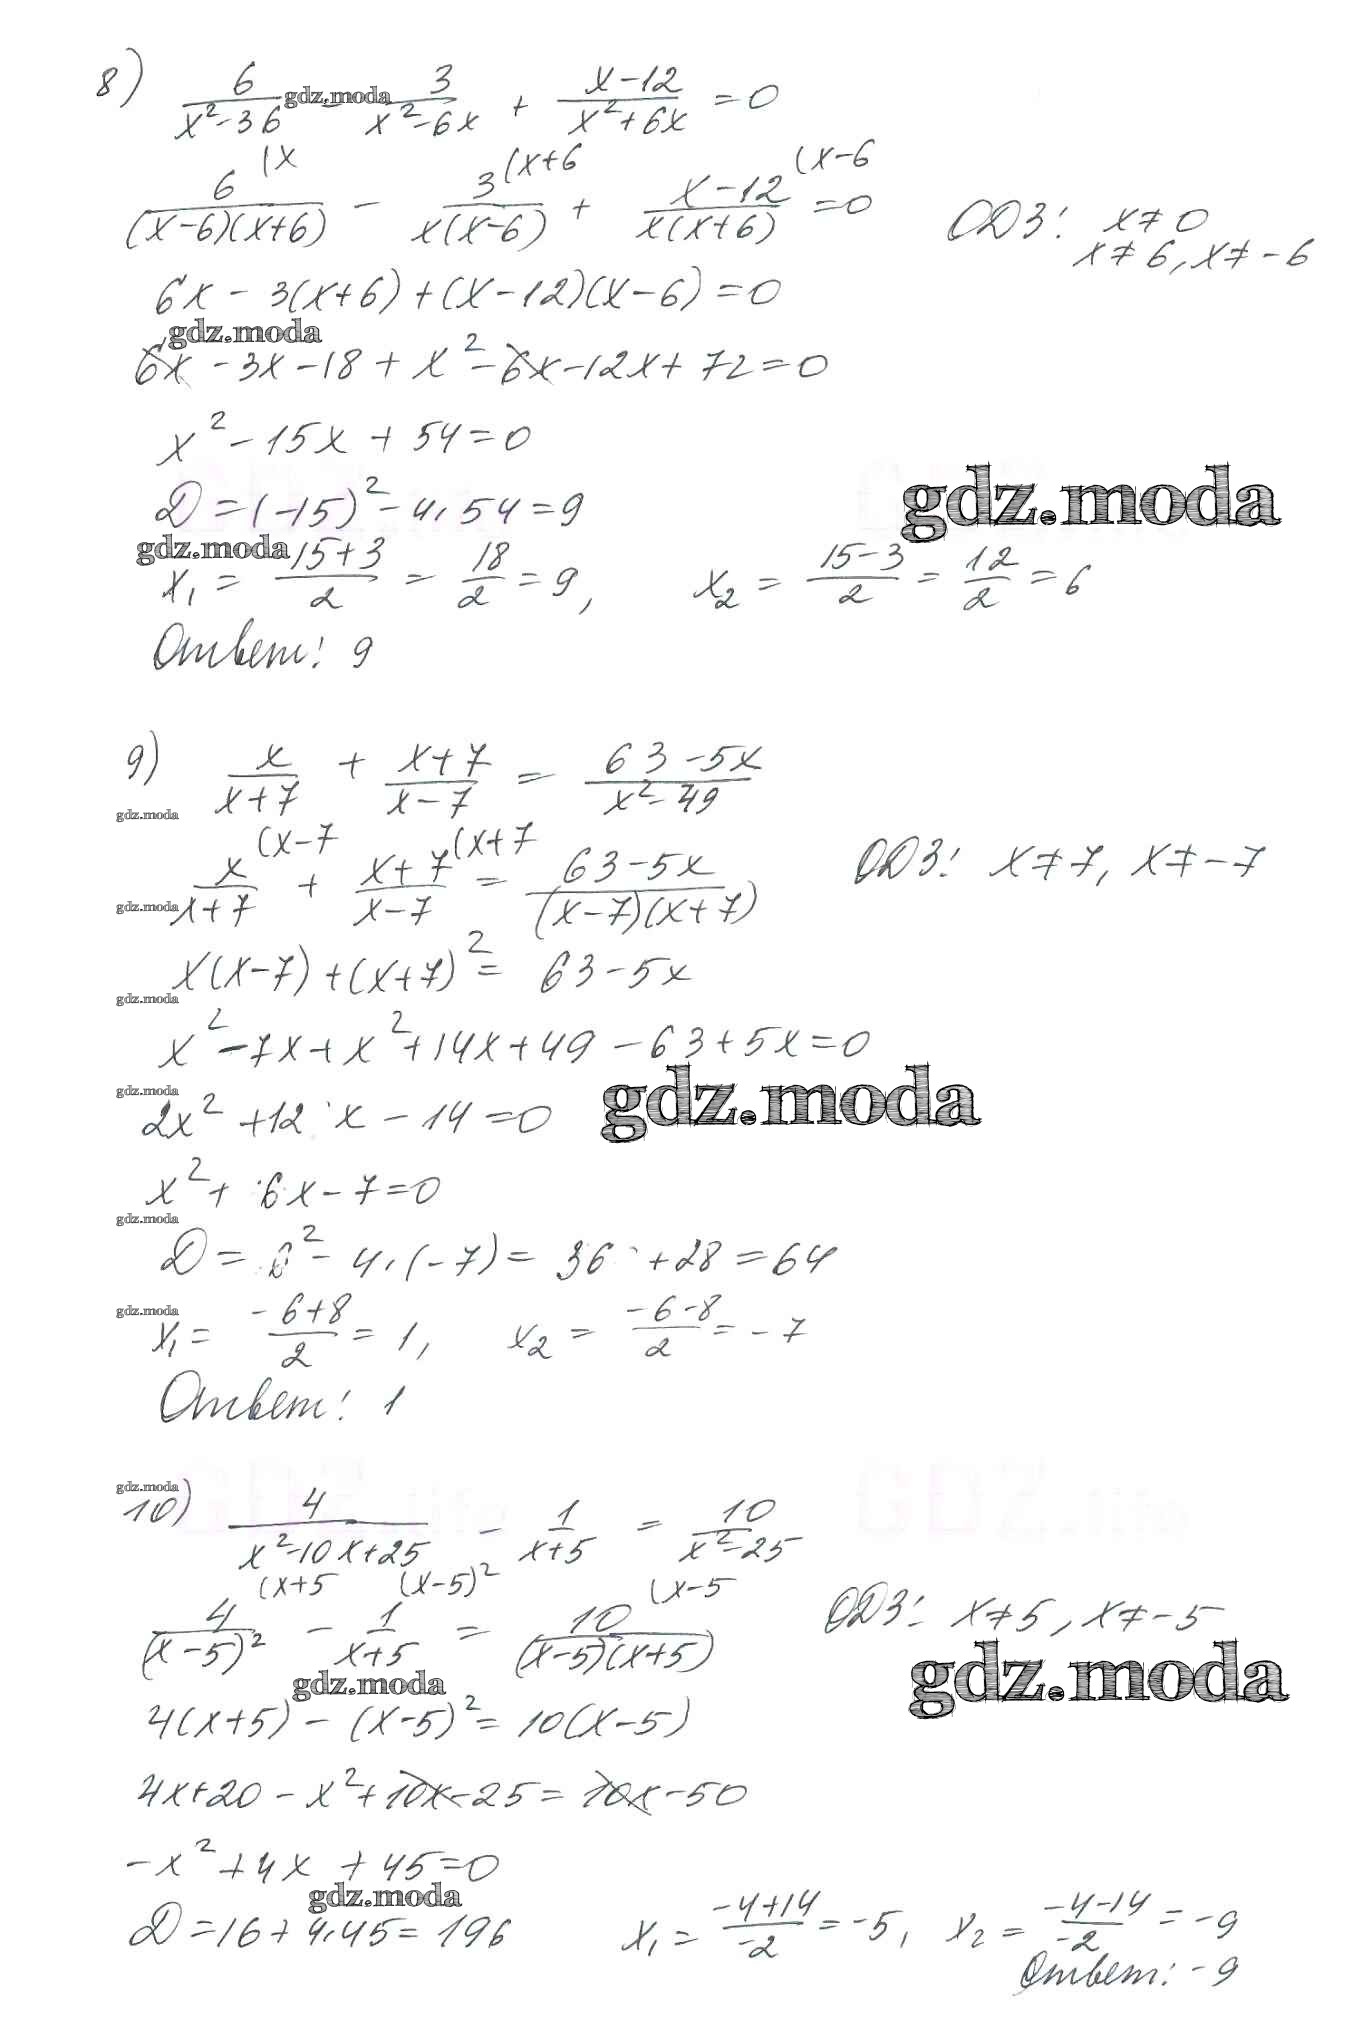 8) 6/(x²-36) gdz.moda - 3/(x²-6x) + (x-12)/(x²+6x) = 0
6/((x-6)(x+6)) (x - 3/(x(x-6)) (x+6 + (x-12)/(x(x+6)) (x-6 = 0 ОДЗ: x≠0
x≠6, x≠-6
6x - 3(x+6) + (x-12)(x-6) = 0
gdz.moda
6x - 3x - 18 + x² - 6x - 12x + 72 = 0
x² - 15x + 54 = 0
gdz.moda
D = (-15)² - 4·54 = 9
gdz.moda
x₁ = (15+3)/2 = 18/2 = 9, x₂ = (15-3)/2 = 12/2 = 6
Ответ: 9
9) x/(x+7) + (x+7)/(x-7) = (63-5x)/(x²-49)
gdz.moda
x/(x+7) (x-7 + (x+7)/(x-7) (x+7 = (63-5x)/((x-7)(x+7)) ОДЗ: x≠7, x≠-7
gdz.moda
x(x-7) + (x+7)² = 63-5x
gdz.moda
x² - 7x + x² + 14x + 49 - 63 + 5x = 0
gdz.moda
gdz.moda
2x² + 12x - 14 = 0
x² + 6x - 7 = 0
gdz.moda
D = 6² - 4·(-7) = 36 + 28 = 64
gdz.moda
x₁ = (-6+8)/2 = 1, x₂ = (-6-8)/2 = -7
Ответ: 1
gdz.moda
10) 4/(x²-10x+25) - 1/(x+5) = 10/(x²-25)
4/(x-5)² (x+5 - 1/(x+5) (x-5)² = 10/((x-5)(x+5)) (x-5 ОДЗ: x≠5, x≠-5
gdz.moda
gdz.moda
4(x+5) - (x-5)² = 10(x-5)
4x+20 - x² + 10x - 25 = 10x - 50
-x² + 4x + 45 = 0
gdz.moda
D = 16 + 4·45 = 196 x₁ = (-4+14)/-2 = -5, x₂ = (-4-14)/-2 = -9
Ответ: -9